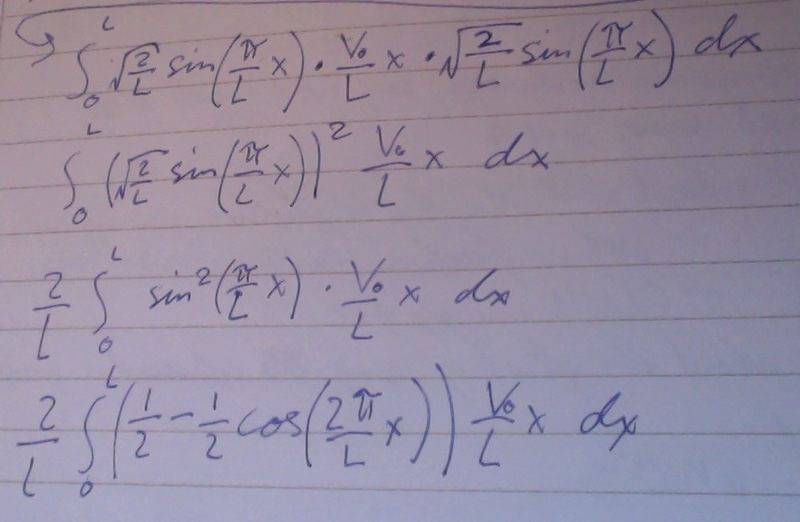 ∫₀ᴸ √(2/L) sin(π/L x) · V₀/L x · √(2/L) sin(π/L x) dx
∫₀ᴸ (√(2/L) sin(π/L x))² V₀/L x dx
2/L ∫₀ᴸ sin²(π/L x) · V₀/L x dx
2/L ∫₀ᴸ (1/2 − 1/2 cos(2π/L x)) V₀/L x dx